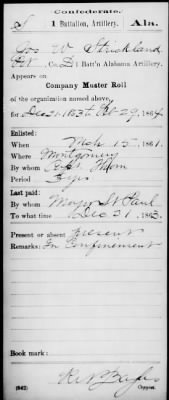 Confederate.
S 1 Battalion, Artillery. Ala.
Jos W Strickland
Pvt, Co. D 1 Batt'n Alabama Artillery.
Appears on
Company Muster Roll
of the organization named above,
for Dec 31 1863 to Feb 29, 1864
Enlisted:
When Mch 15, 1861.
Where Montgomery
By whom Capt
Period 3 yrs
Last paid:
By whom Major St Paul
To what time Dec 31, 1863.
Present or absent Present
Remarks: In Confinement
Book mark:
(642) Copyist.